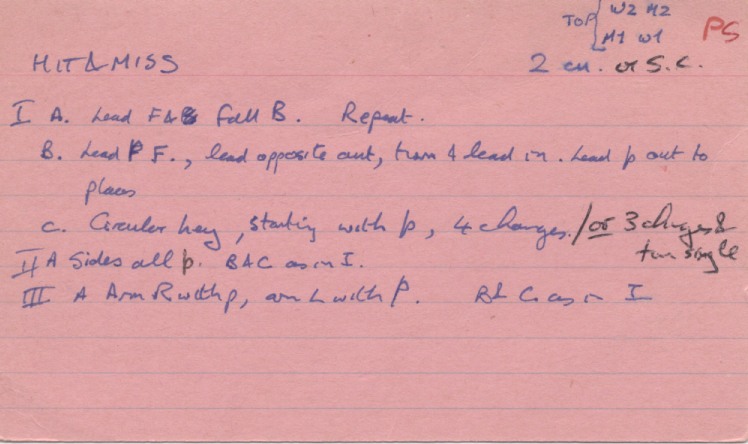 TOP { W2 M2
M1 W1
PS
HIT & MISS
2 cu. or S.C.
I A. Lead F & B fall B. Repeat.
B. Lead P F., lead opposite out, turn & lead in. Lead p out to
places
C. Circular hey, starting with p, 4 changes. / or 3 changes &
turn single
II A Sides all p. B & C as in I.
III A Arm R with p, arm L with P. B & C as in I